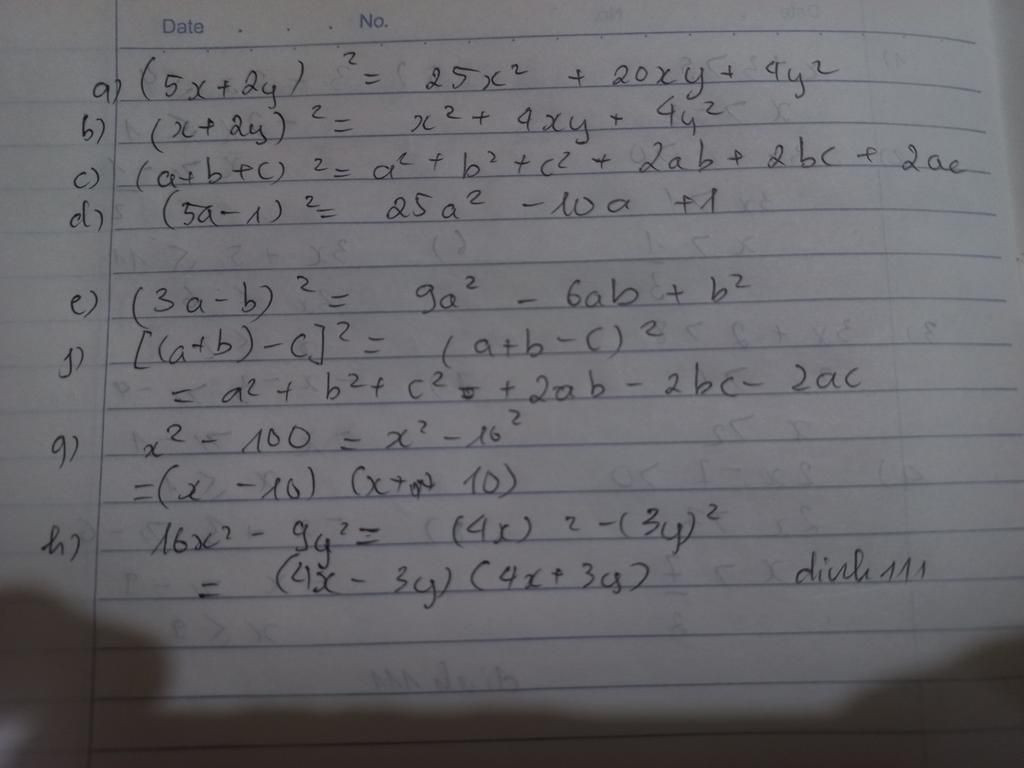 Date . . No.
a) (5x+2y)² = 25x² + 20xy + 4y²
b) (x+2y)² = x² + 4xy + 4y²
c) (a+b+c)² = a² + b² + c² + 2ab + 2bc + 2ac
d) (5a-1)² = 25a² - 10a +1
e) (3a-b)² = 9a² - 6ab + b²
f) [(a+b)-c]² = (a+b-c)²
= a² + b² + c² + 2ab - 2bc - 2ac
g) x² - 100 = x² - 10²
= (x - 10) (x+ 10)
h) 16x² - 9y² = (4x)² - (3y)²
= (4x - 3y) (4x + 3y) dinh111